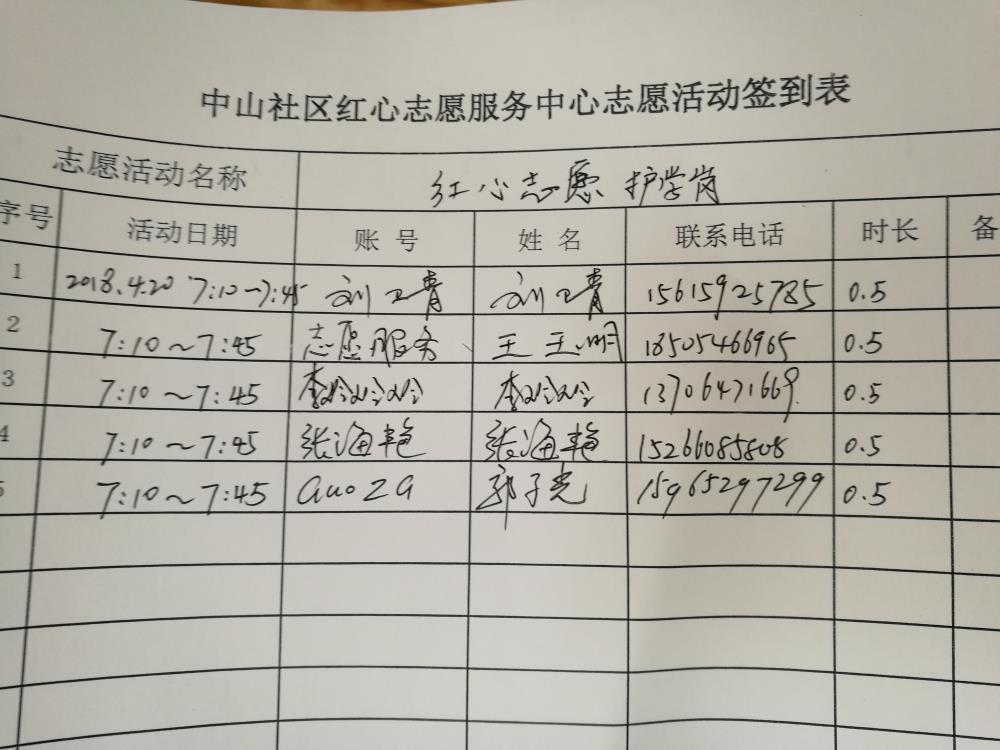 中山社区红心志愿服务中心志愿活动签到表
志愿活动名称 红心志愿 护学岗
序号 活动日期 账号 姓名 联系电话 时长 备
1 2018.4.20 7:10~7:45 刘卫青 刘卫青 15615925785 0.5
2 7:10~7:45 志愿服务 王玉明 18505466965 0.5
3 7:10~7:45 李玲玲 李玲玲 13706471669 0.5
4 7:10~7:45 张海艳 张海艳 15266085808 0.5
5 7:10~7:45 guo 郭子光 15965297299 0.5